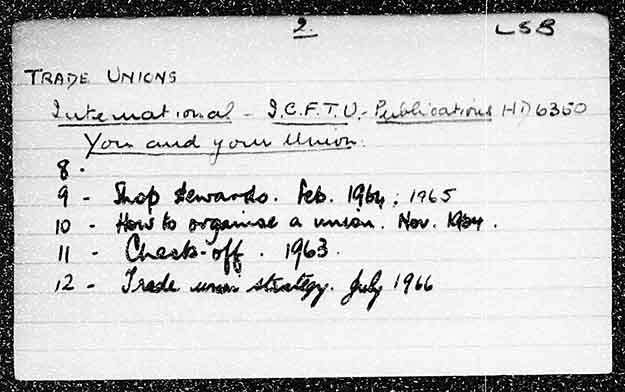 2. LSB
TRADE UNIONS
International - I.C.F.T.U. - Publications HD6350
You and your Union.
8.
9 - Shop Stewards. Feb. 1964; 1965
10 - How to organise a union. Nov.
11 - Check-off. 1963.
12 - Trade union strategy. July 1966